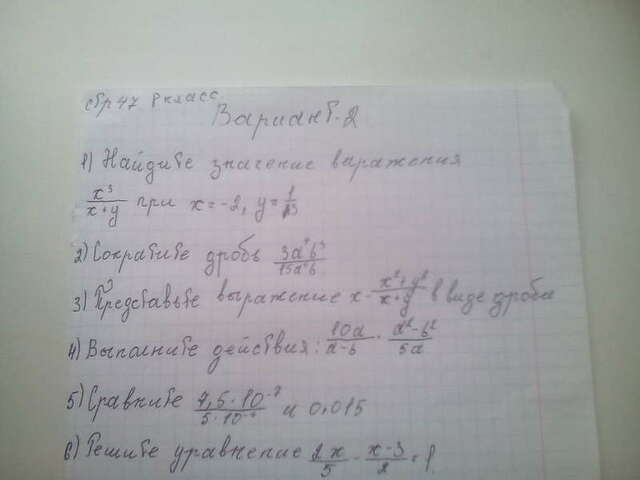 стр 47 8 класс
Вариант-2
1) Найдите значение выражения
x³/(x+y) при x=-2, y=1/3
2) Сократите дробь
3) Представьте выражение x - (x²+y²)/(x+y) в виде дроби
4) Выполните действия: 10a/(a-b) · (a²-b²)/5a
5) Сравните и 0,015
6) Решите уравнение 2x/5 - (x-3)/2 = 1